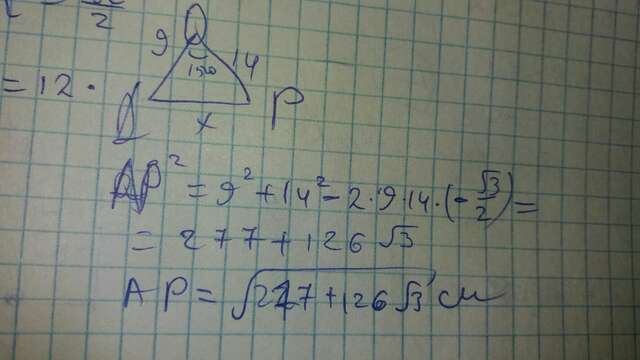 2
9 150 14
= 12 ·
x P
AP² = 9² + 14² - 2 · 9 · 14 · (-√3/2) =
= 277 + 126√3
AP = √277 + 126√3 см